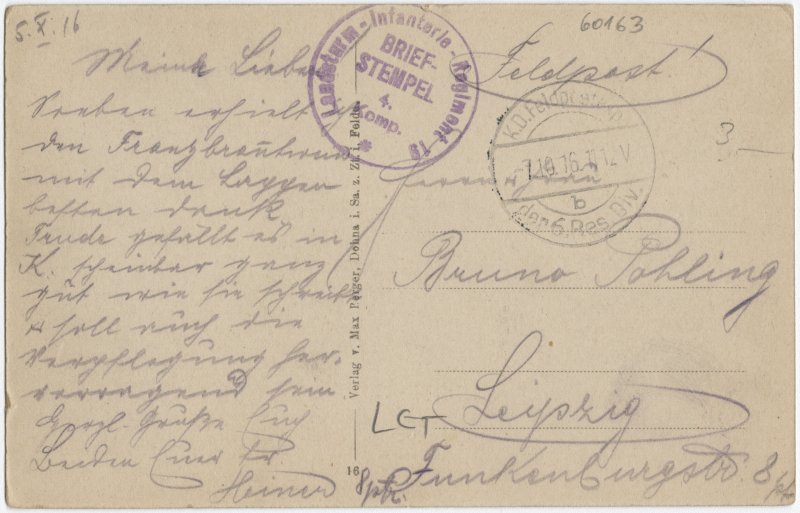 5.X.16
Meine Lieben
Soeben erhielt ich
den Franzbrantwein
mit dem Lappen
besten Dank
Trude gefällt es in
K. scheinbar ganz
gut wie sie schreibt
soll auch die
Verpflegung her-
vorragend sein
Herzl. Grüße Euch
Beiden Euer
Heiner
Landsturm-Infanterie-Regiment 19
BRIEF-
STEMPEL
4.
Komp.
Verlag v. Max Berger, Dohna i. Sa. z. Zt. i. Felde.
16
60163
Feldpost!
K.D. Feldpostexp.
7.10.16. V
b
der 6. Res. Div.
3 —
Herrn
Bruno Pohling
Leipzig
Funkenburgstr. 8
LCT